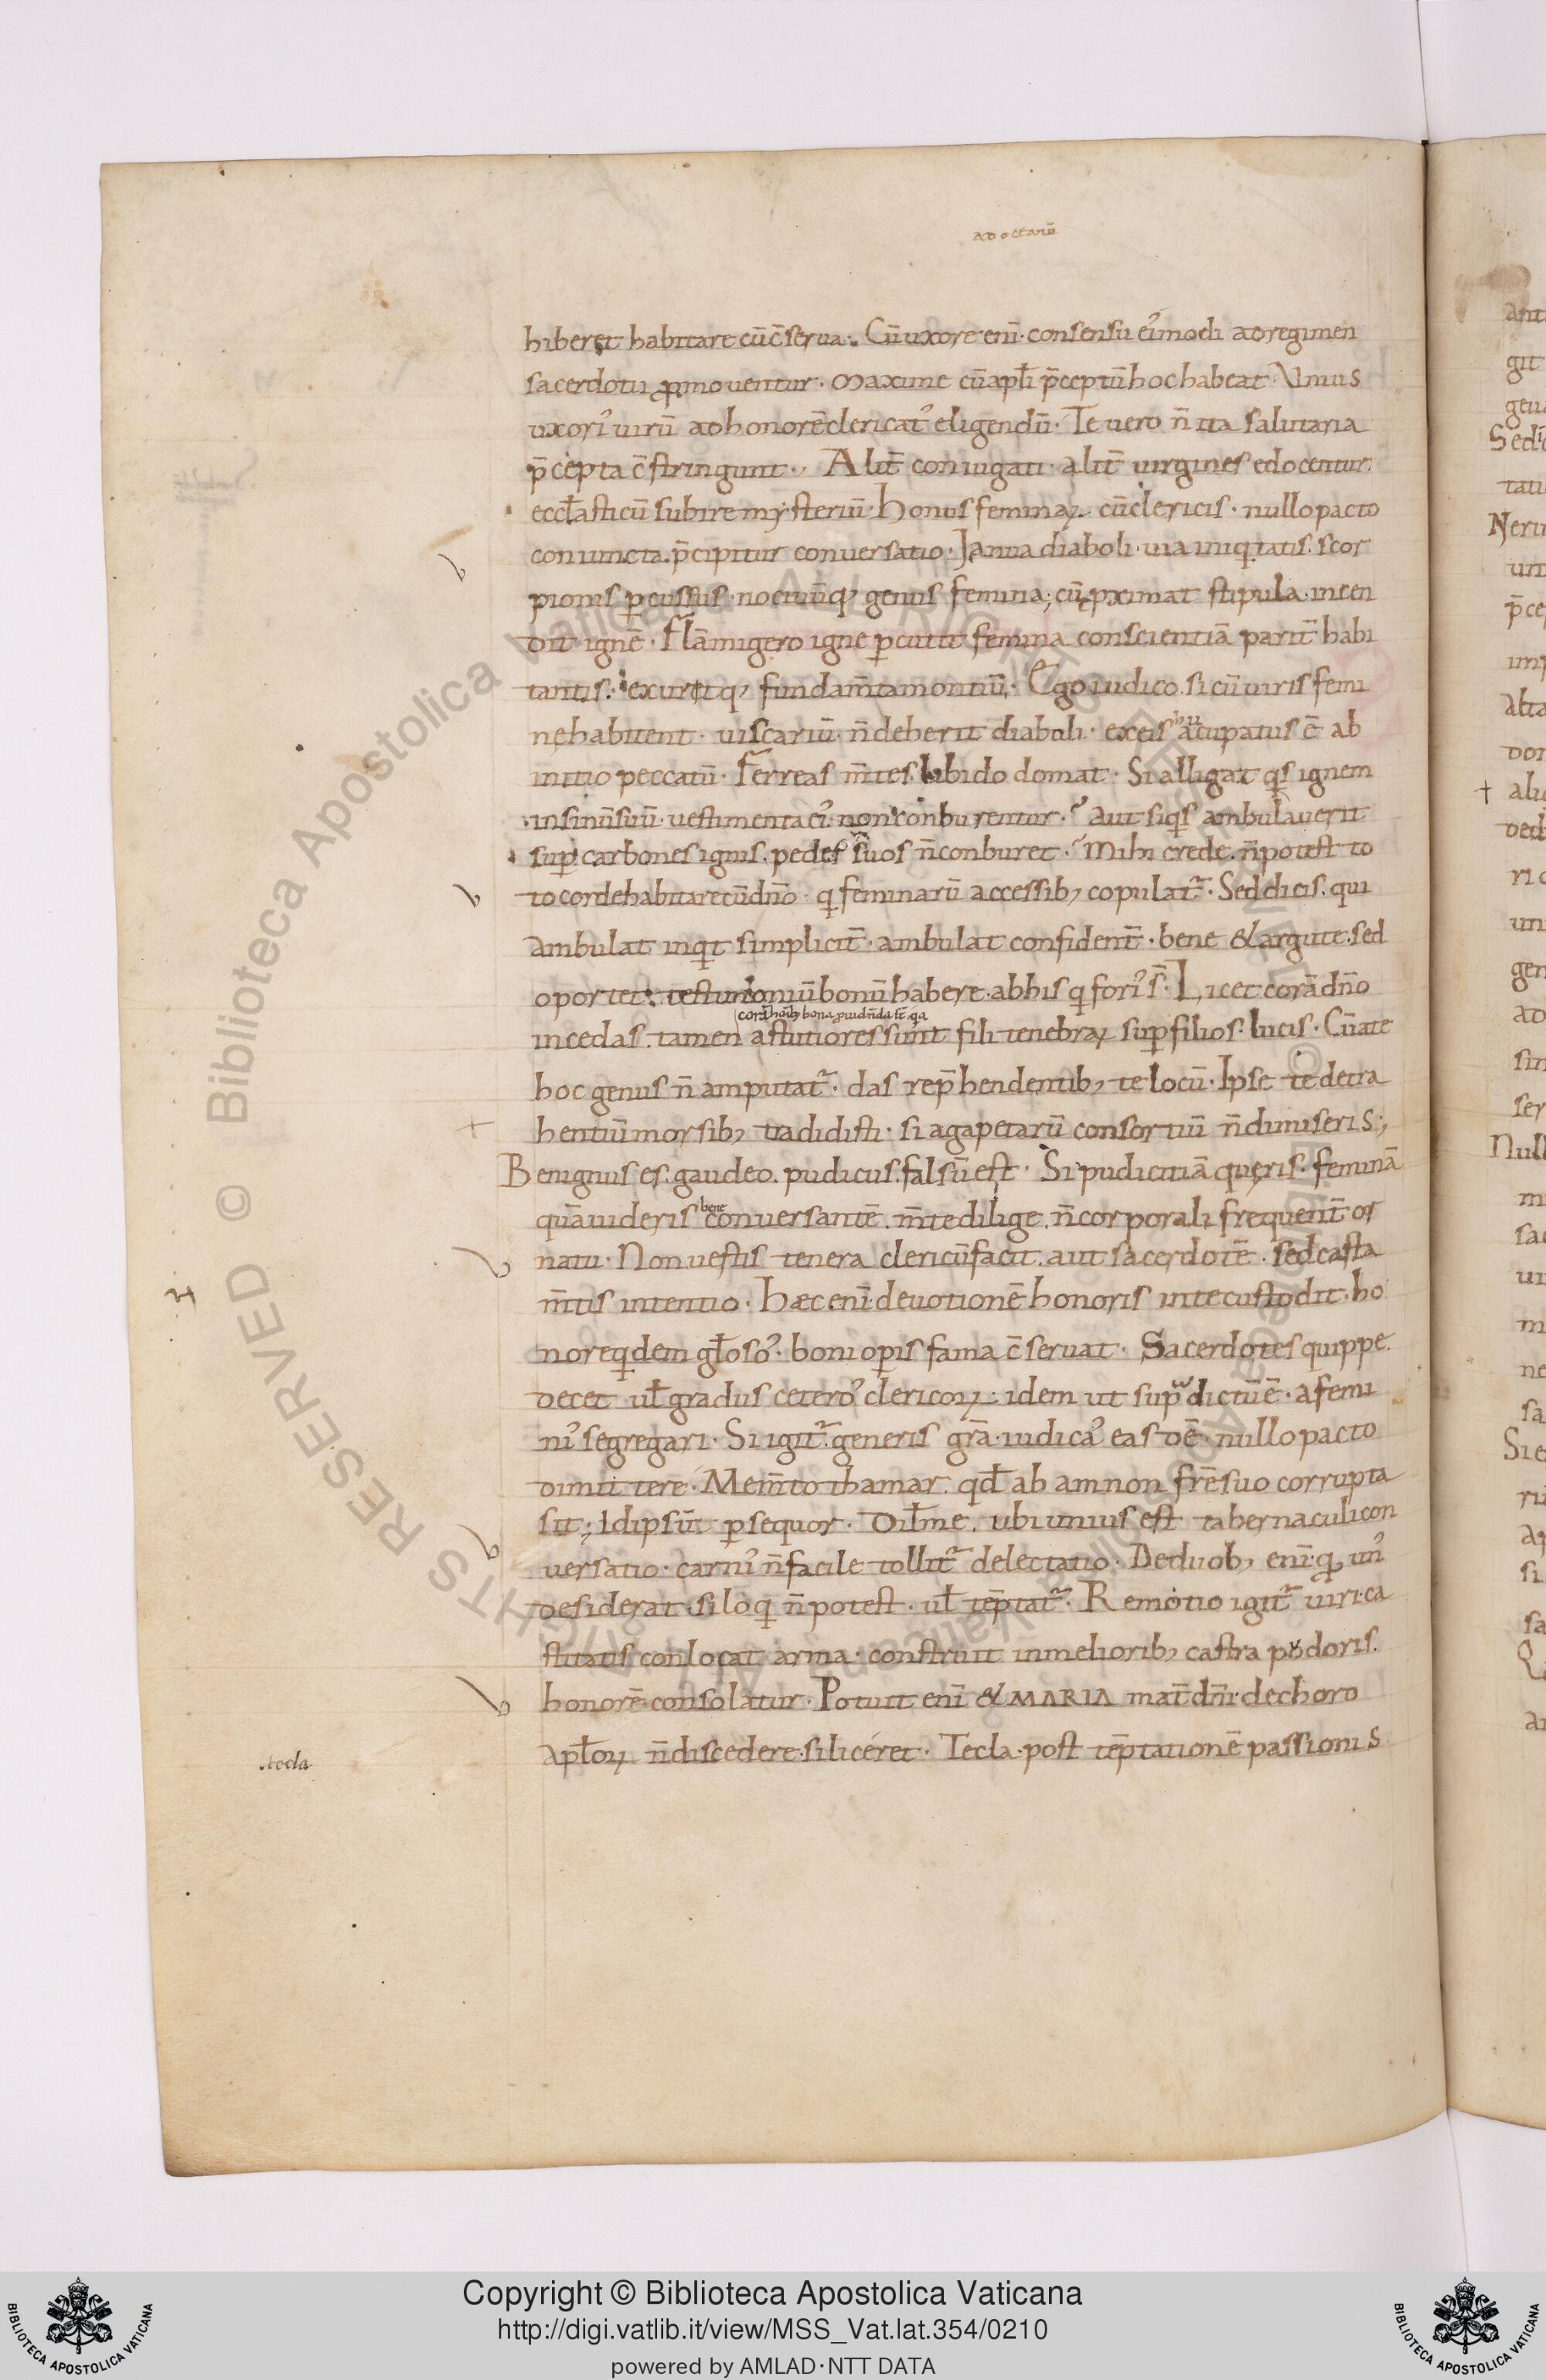 ad octauū
hiberet habitare cū c̄serua. Cū uxore enī consensu ei᾽modi ad regimen
sacerdotii ꝓmouentur. maxime cū apłi p̄ceptū hoc habeat. Unius
uxori᾽ uirū ad honorē clericat᾽ eligendū. Te uero n̄ ita salutaria
p̄cepta c̄stringunt. Alit̄ coniugati. alit̄ uirgines edocentur
eccłasticū subire mysteriū. Honus feminaꝝ. cū clericis. nullo pacto
coniuncta. p̄cipitur conuersatio. Janua diaboli. uia iniq̇tatis. scor
pionis ꝑcussus. nociuūq; genus femina; cū ꝓximat stipula. incen
dit ignē. Flāmigero igne ꝑcutit femina conscientiā parit̄ habi
tantis. exuretq; fundam̄ta montiū. Ego iudico. si cū uiris femi
nę habitent. uiscariū n̄ deberit diaboli. ex eis aucupatus ē ab
initio peccatū. Ferreas m̄tes libido domat. Si alligat q̇s ignem
in sinū suū. uestimenta ei᾽ non conburentur. aut si q̇s ambulauerit
suꝑ carbones ignis. pedes suos n̄ conburet. Mihi crede. n̄ potest to
to corde habitare cū dn̄o. qͥ feminarū accessib; copulat᷑. Sed dicis. qui
ambulat inq̇t simplicit̄. ambulat confident̄. bene & argute. sed
oportet. testimoniū bonū habere. ab his qͥ fori᾽ s̄. Licet corā dn̄o
corā hoīb; bona ꝓuidn̄da s̄. qa
incedas. tamen astutiores sunt fili tenebraꝝ suꝑ filios lucis. Cū a te
hoc genus n̄ amputat᷑. das rep̄hendentib; te locū. Ipse te detra
hentiū morsib; tradidisti. si agapetarū consortiū n̄ dimiseris;
Benignus es. gaudeo. pudicus. falsū est. Si pudicitiā queris. feminā
quā uideris bene conuersantē. m̄te dilige. n̄ corporali frequent̄ or
natu. Non uestis tenera clericū facit. aut sacerdotē. sed casta
m̄tis intentio. Haec enī deuotionē honoris in te custodit. ho
noreq̇dem głoso᾽. boni oꝑis fama c̄seruat. Sacerdotes quippe
decet uł gradus cetero᾽ clericoꝝ. idem ut supͣ dictū ē. a femi
ni᾽ segregari. Si igit᷑ generis grā iudica᾽ eas dē. nullo pacto
dimittere. Mem̄to thamar. qđ ab amnon fr̄e suo corrupta
sit; Id ipsūt ꝑsequor. dił me. ubi unius est tabernaculi con
uersatio. carni᾽ n̄ facile tollit᷑ delectatio. De duob; enī qͥ un᾽
desiderat. si loqͥ n̄ potest. uł tēptat᷑. Remotio igit᷑ uiri. ca
stitatis conlocat arma. construit in melioribus castra pudoris.
honorē consolatur. Potuit enī & MARIA mat̄ dn̄i. de choro
apłoꝝ n̄ discedere. si liceret. Tecla. post tēptationē passionis
.tecla
Copyright © Biblioteca Apostolica Vaticana
http://digi.vatlib.it/view/MSS_Vat.lat.354/0210
powered by AMLAD·NTT DATA